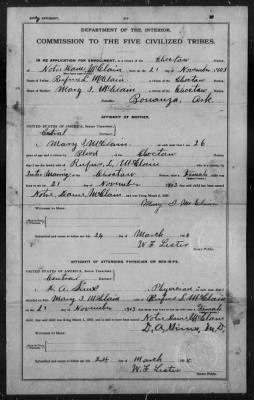 DEPARTMENT OF THE INTERIOR.
COMMISSION TO THE FIVE CIVILIZED TRIBES.
IN RE APPLICATION FOR ENROLLMENT, as a citizen of the Choctaw Nation,
of Notie Dame McClain, born on the 21 day of November 1903
Name of Father: Rufus L McClain a citizen of the Choctaw Nation.
Name of Mother: Mary I. McClain a citizen of the Choctaw Nation.
Bonanza, Ark.
AFFIDAVIT OF MOTHER.
UNITED STATES OF AMERICA, Indian Territory,
Central District.
I, Mary I McClain, on oath state that I am 26
years of age and a citizen by Blood of the Choctaw Nation;
that I am the lawful wife of Rufus L McClain, who is a citizen, by
Inter Marriage of the Choctaw Nation; that a Female child was
born to me on 21 day of November 1903 that said child has been named
Notie Dame McClain, and was living March 4, 1905.
Mary I McClain
Witnesses to Mark:
Subscribed and sworn to before me this 24 day of March
W F Lester
Notary Public.
AFFIDAVIT OF ATTENDING PHYSICIAN OR MID-WIFE.
UNITED STATES OF AMERICA, Indian Territory,
Central District.
Physician
Mary I McClain, wife of Rufus L McClain
on the 21 day of November 1903
child; that said child was living March 4, 1905, and is said to have been named Notie Dame McClain
M.D.
Witnesses to Mark:
Subscribed and sworn to before me this 24 day of March
W. F. Lester
Notary Public.